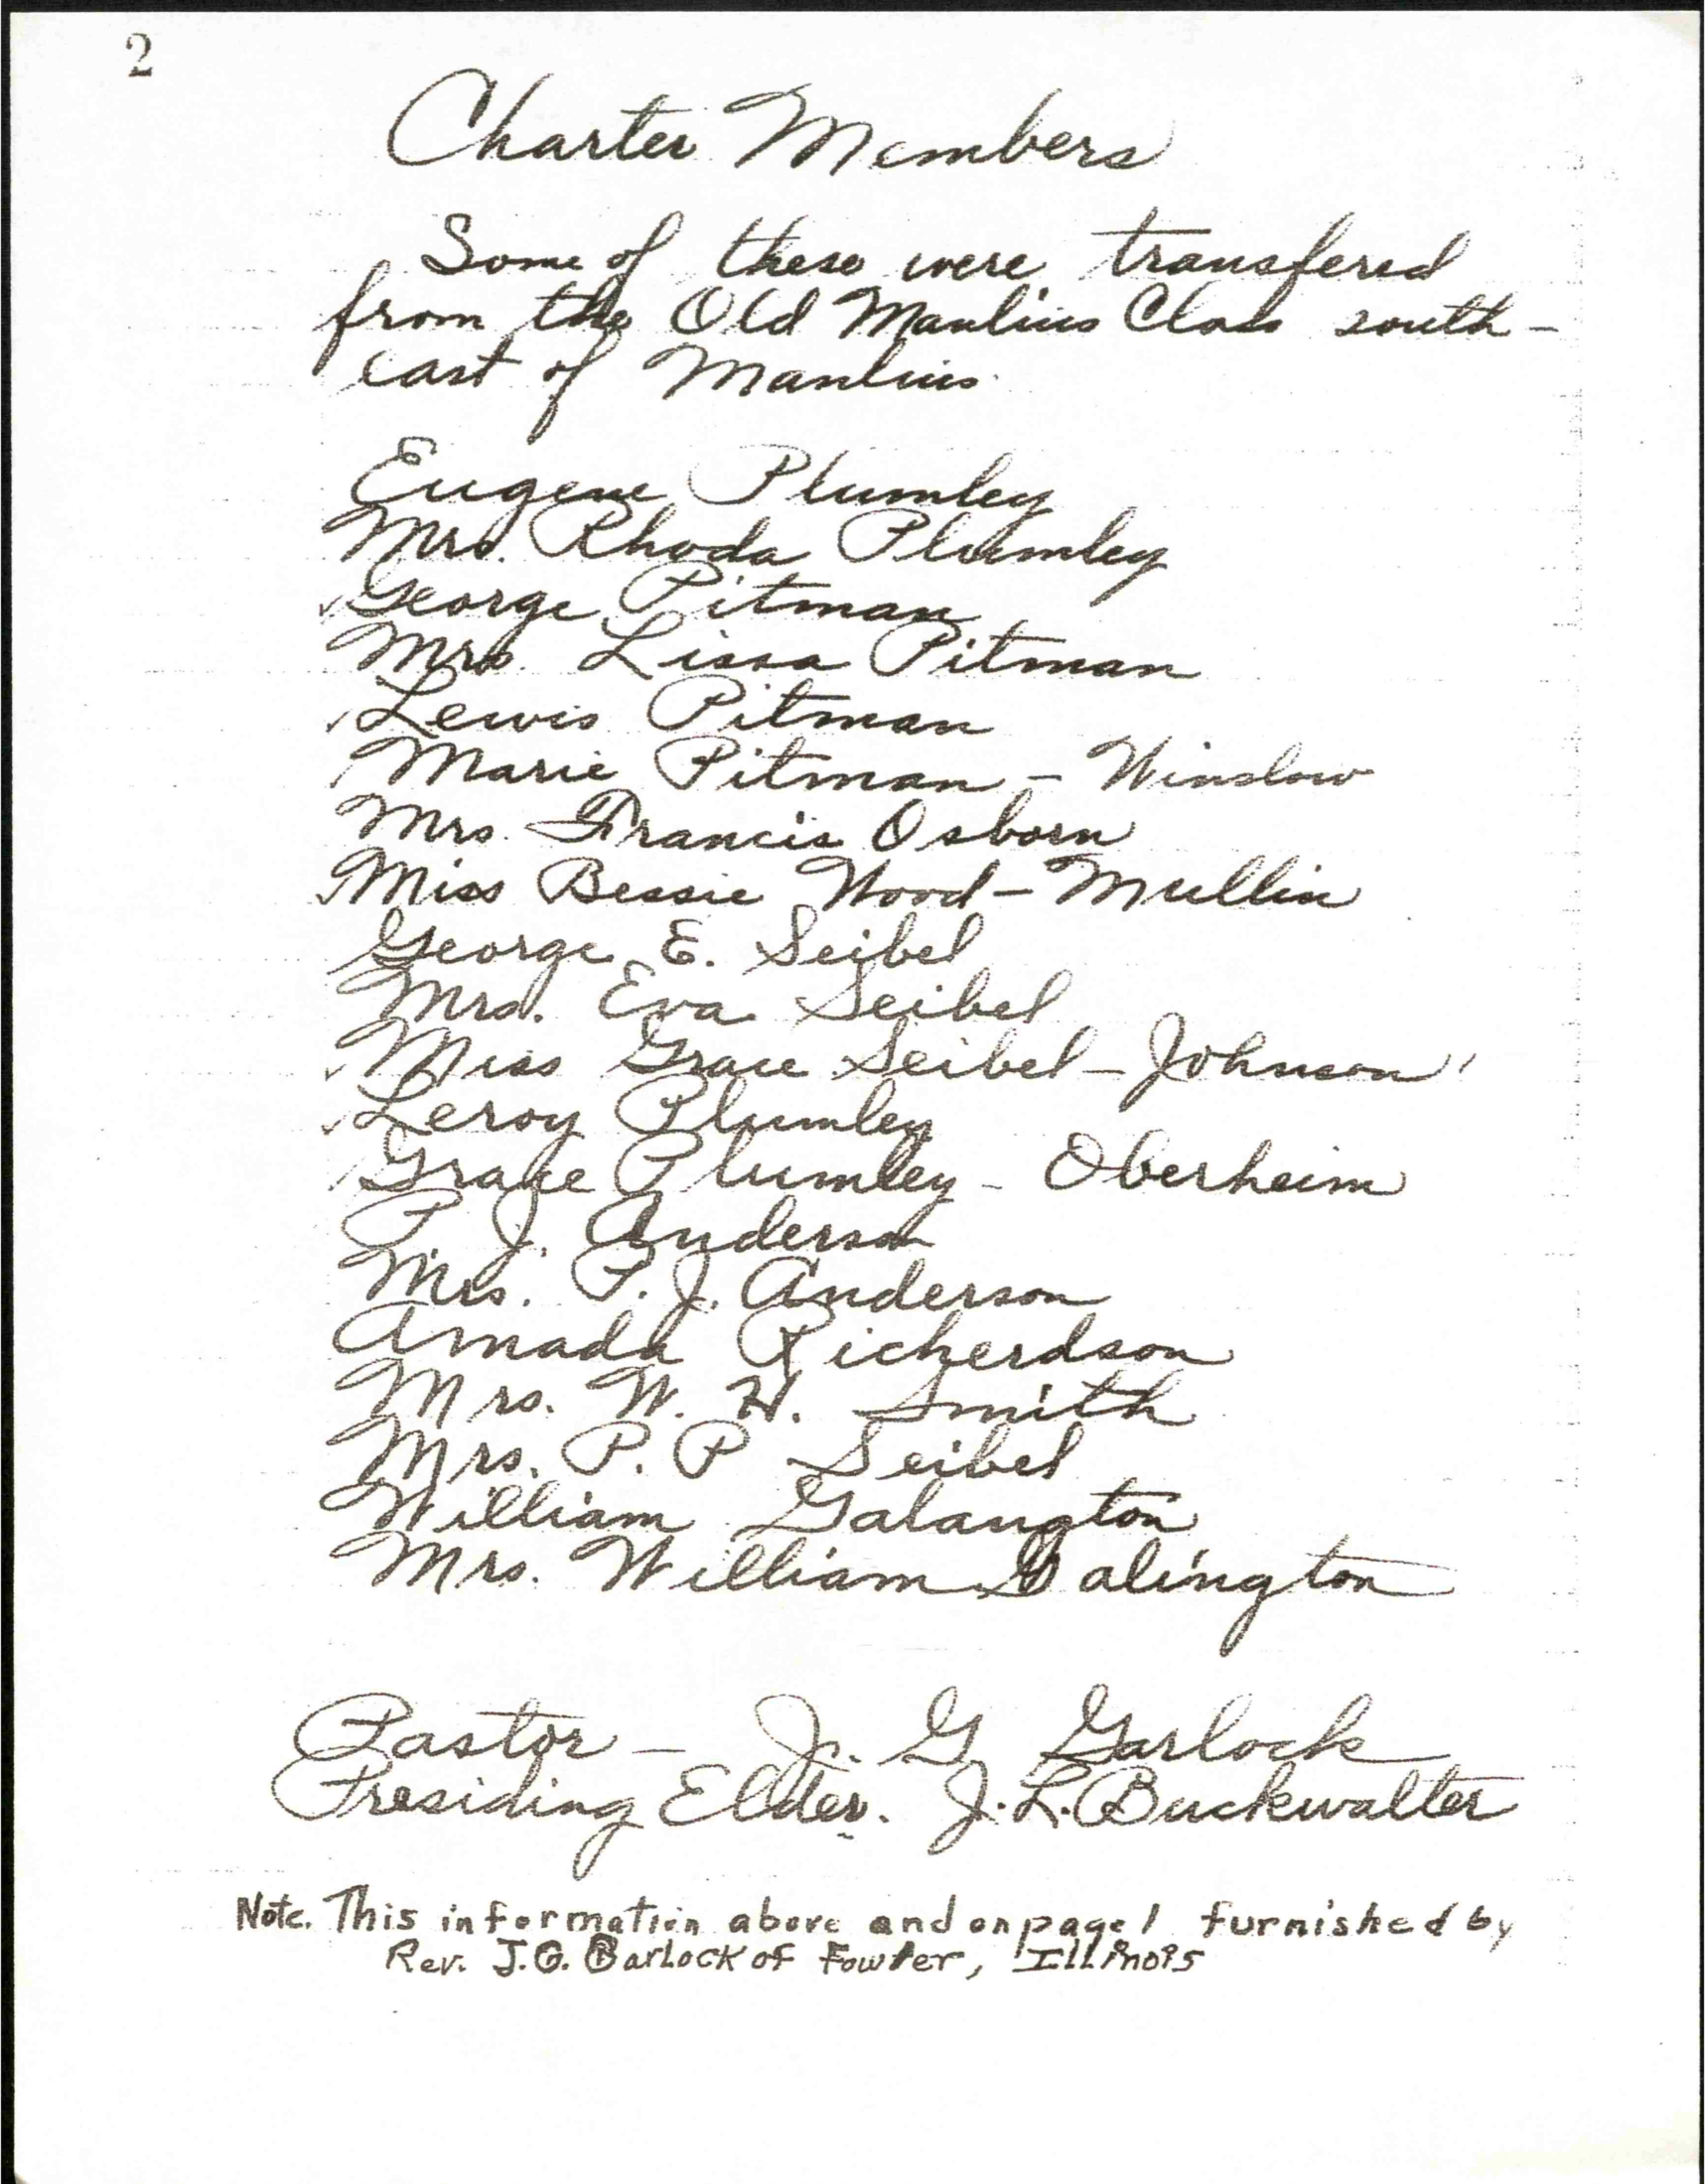 2
Charter Members
Some of these were transfered
from the Old Manlius Class south-
east of Manlius.
Eugene Plumley
Mrs. Rhoda Plumley
✓George Pitman
Mrs. Lissa Pitman
✓Lewis Pitman
✓Marie Pitman - Winslow
Mrs. Francis Osborn
✓Miss Bessie Wood - Mullin
George E. Seibel
Mrs. Eva Seibel
✓Miss Grace Seibel - Johnson
✓Leroy Plumley
✓Grace Plumley - Oberheim
P J. Anderson
Mrs. P. J. Anderson
Amada Richerdson
Mrs. W. H. Smith
Mrs. P. P Seibel
William Galangton
Mrs. William Galington
Pastor - J. G Garlock
Presiding Elder. J. L. Buckwalter
Note. This information above and on page 1 furnished by
Rev. J.G. Barlock of Fowler, Illinois